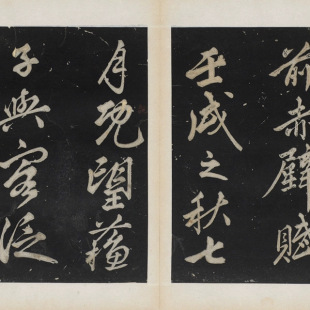 前赤壁賦
壬戌之秋七
月既望蘇
子與客泛